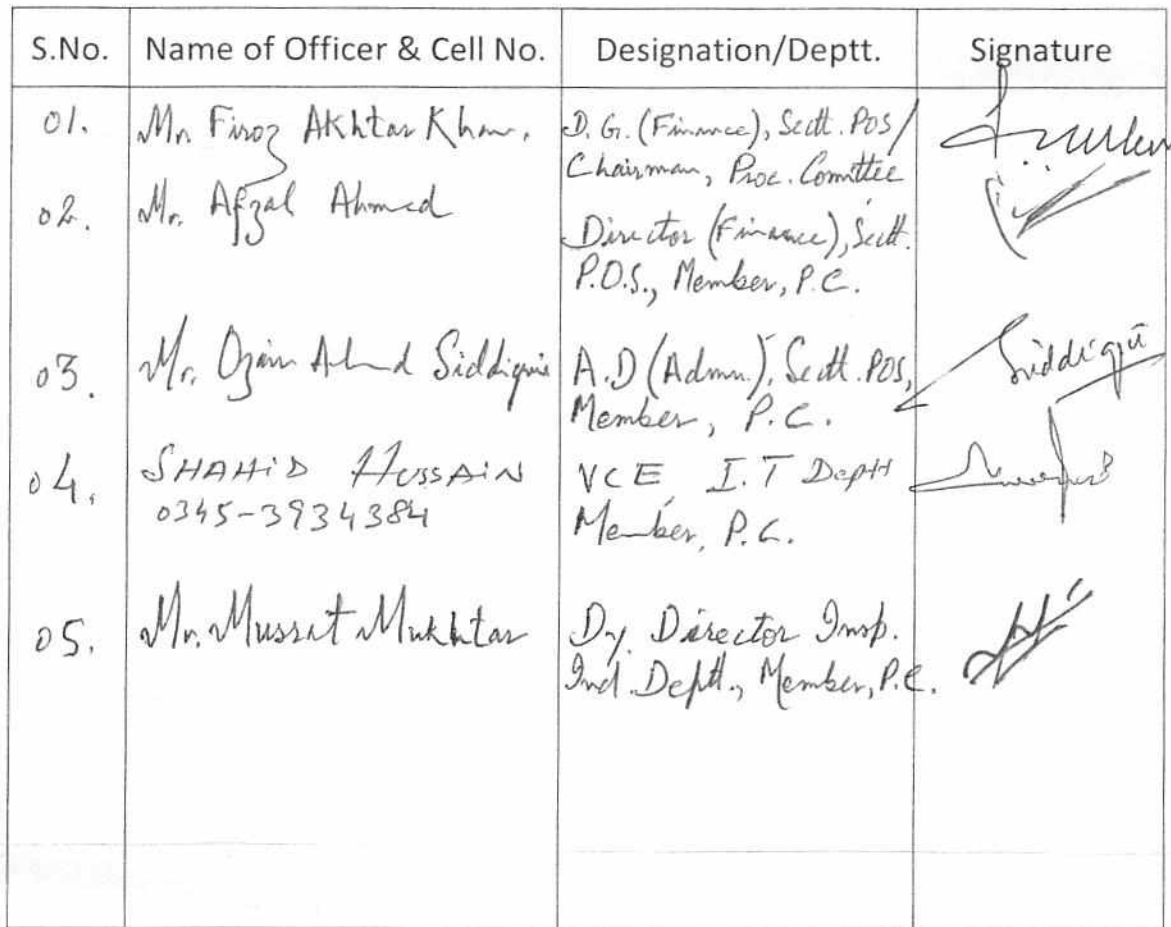 S.No. Name of Officer & Cell No. Designation/Deptt. Signature
01. Mr. Firoz Akhtar Khan. D.G. (Finance), Sectt. POS/
Chairman, Proc. Comittee
02. Mr. Afzal Ahmed
Director (Finance), Sectt.
P.O.S., Member, P.C.
03. Mr. Siddiqui A.D (Admn.), Sectt. POS, Siddiqui
Member, P.C.
04. SHAHiD HUSSAiN VCE I.T Deptt
0345-3934384 Member, P.C.
05. Mr. Mussrat Mukhtar Dy. Director Insp.
Ind. Deptt., Member, P.C.